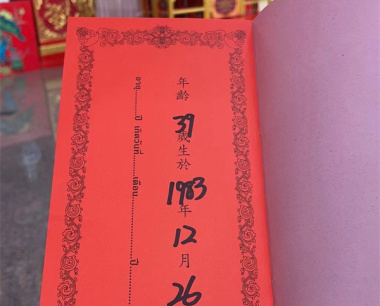 年齡 39 歲生於 1983 年 12 月 26
อายุ........ปี เกิดวันที่........เดือน........ปี